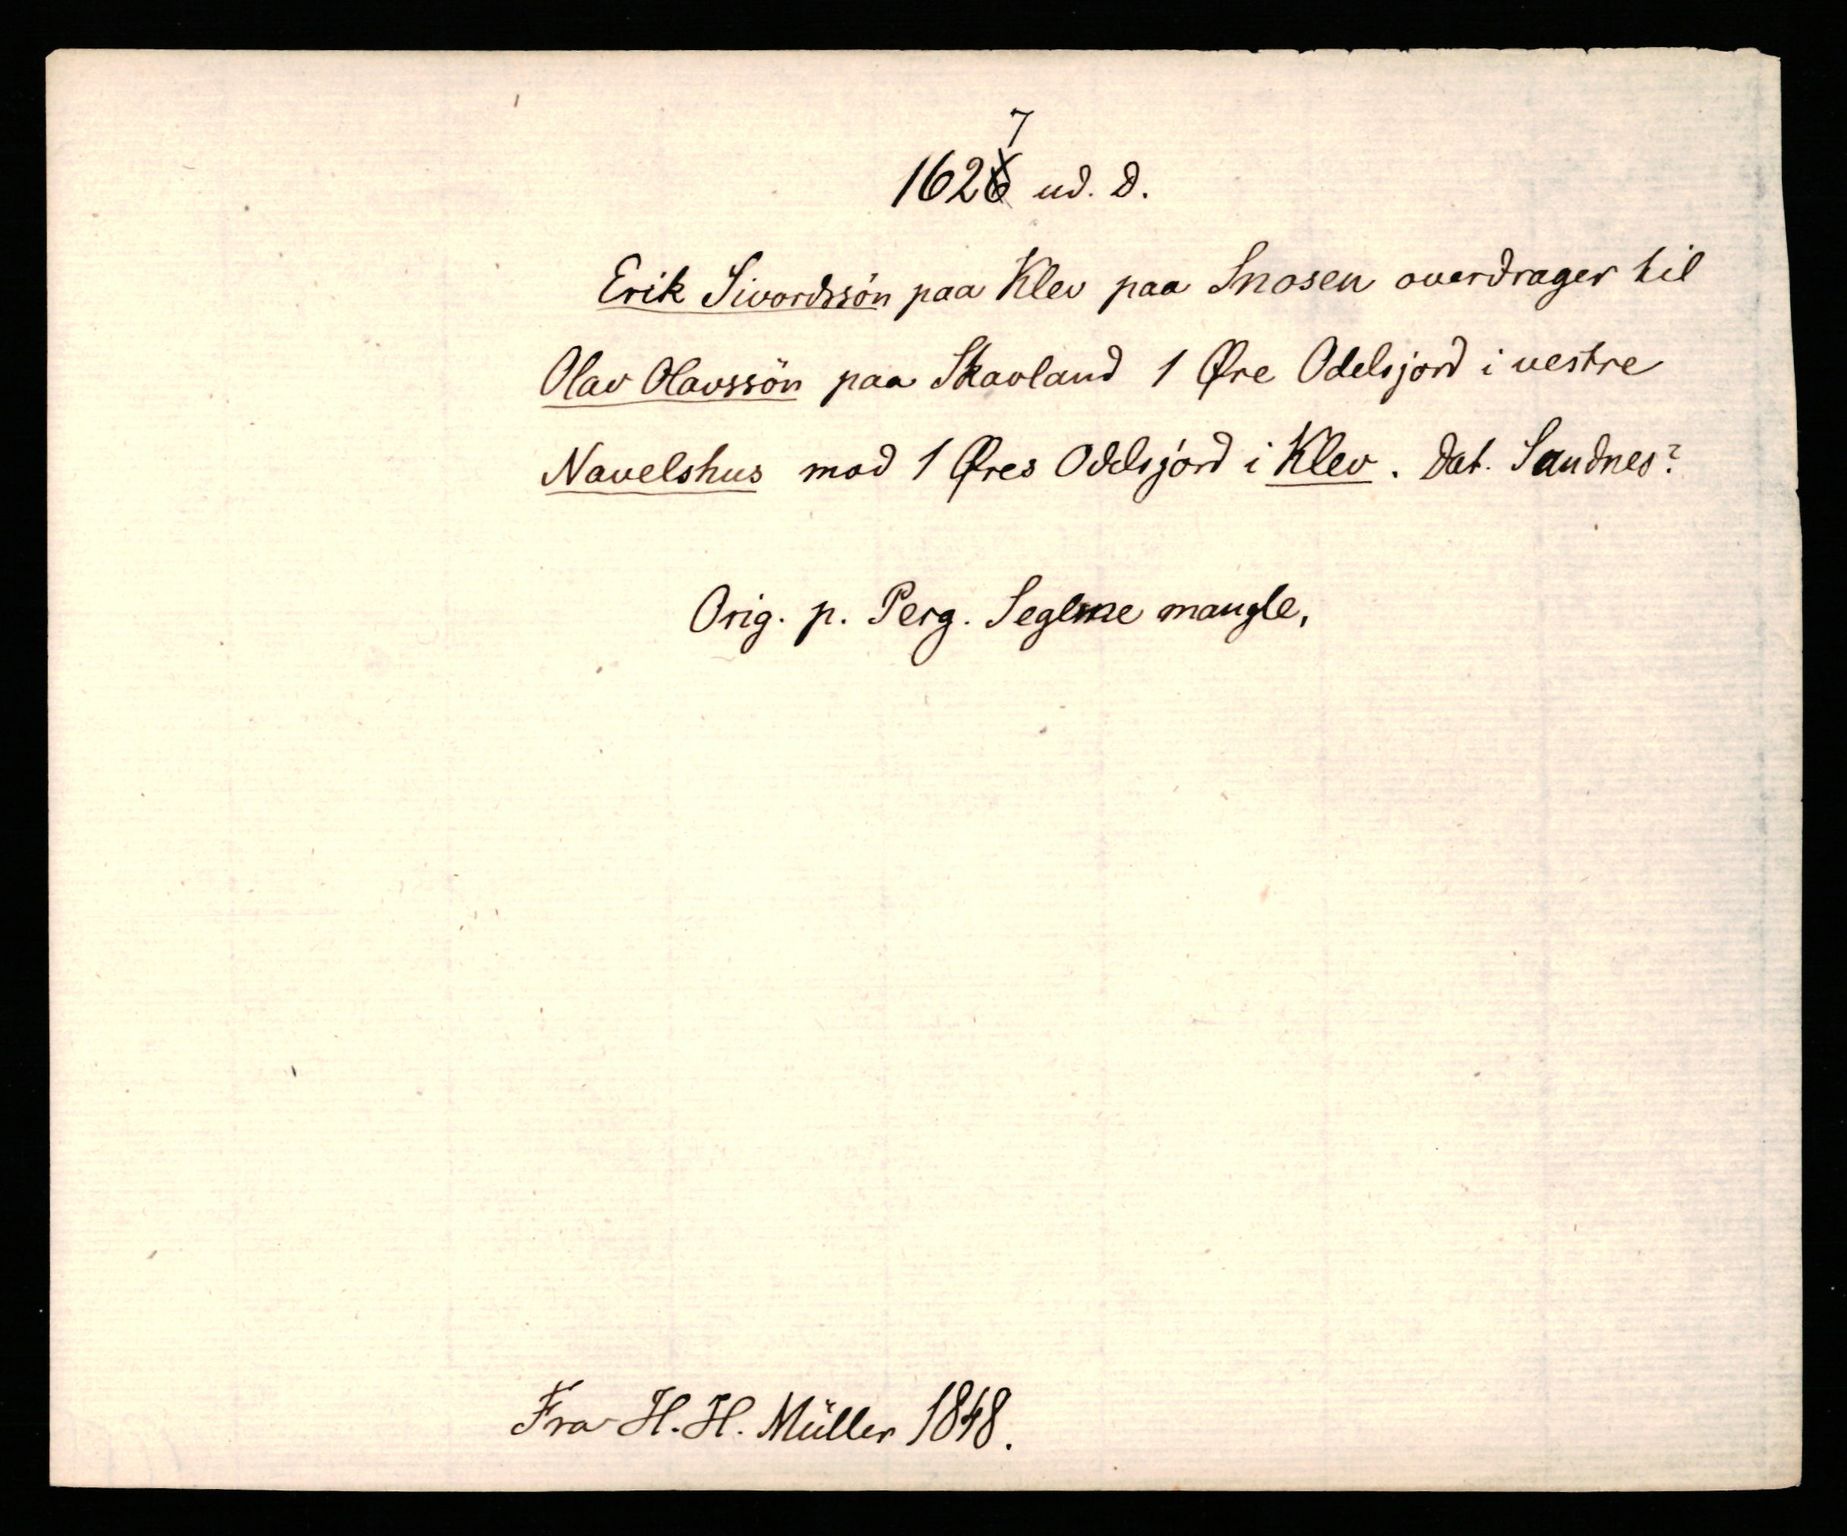 1627 ud. D.
Erik Sivordssön paa Klev paa Snosen overdrager til
Olav Olavssön paa Skavland 1 Øre Odelsjord i vestre
Navelshus mod 1 Øres Odelsjord i Klev. Dat. Sandnes?
Orig. p. Perg. Seglene mangle.
Fra H. H. Müller 1848.